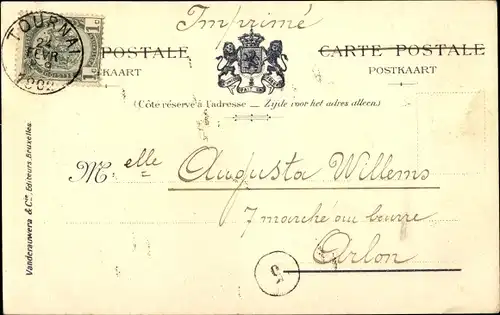 Imprimé
TOURNAI
FEVR
1902
1c 1c
POSTALE
CARTE POSTALE
KAART
POSTKAART
(Côté réservé à l'adresse _ Zijde voor het adres alleen)
Melle Augusta Willems
7 marché au beurre
Arlon
5
Vanderauwera & Cie, Editeurs, Bruxelles.